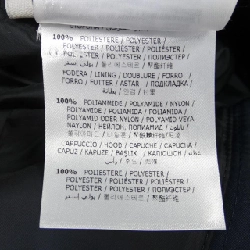 100% POLIESTERE / POLYESTER /
POLYESTER / POLIÉSTER / POLIÉSTER /
POLYESTER / POLYESTER / ПОЛИЭСТЕР /
폴리에스테르 / 聚酯纤维
FODERA / LINING / DOUBLURE / FORRO /
FORRO / FUTTER / ASTAR / ПОДКЛАДКА /
بطانة / 안감 /
100% POLIAMMIDE / POLYAMIDE / NYLON /
POLYAMIDE / POLIAMIDA / POLIAMIDA /
POLYAMID ODER NYLON / POLYAMID VEYA
NAYLON / НЕЙЛОН, ПОЛИАМИД /
CAPPUCCIO / HOOD / CAPUCHE / CAPUCHA /
CAPUZ / KAPUZE /
100% POLIESTERE / POLYESTER /
POLYESTER / POLIÉSTER / POLIÉSTER /
POLYESTER / POLYESTER / ПОЛИЭСТЕР /
폴리에스테르 / 聚酯纤维